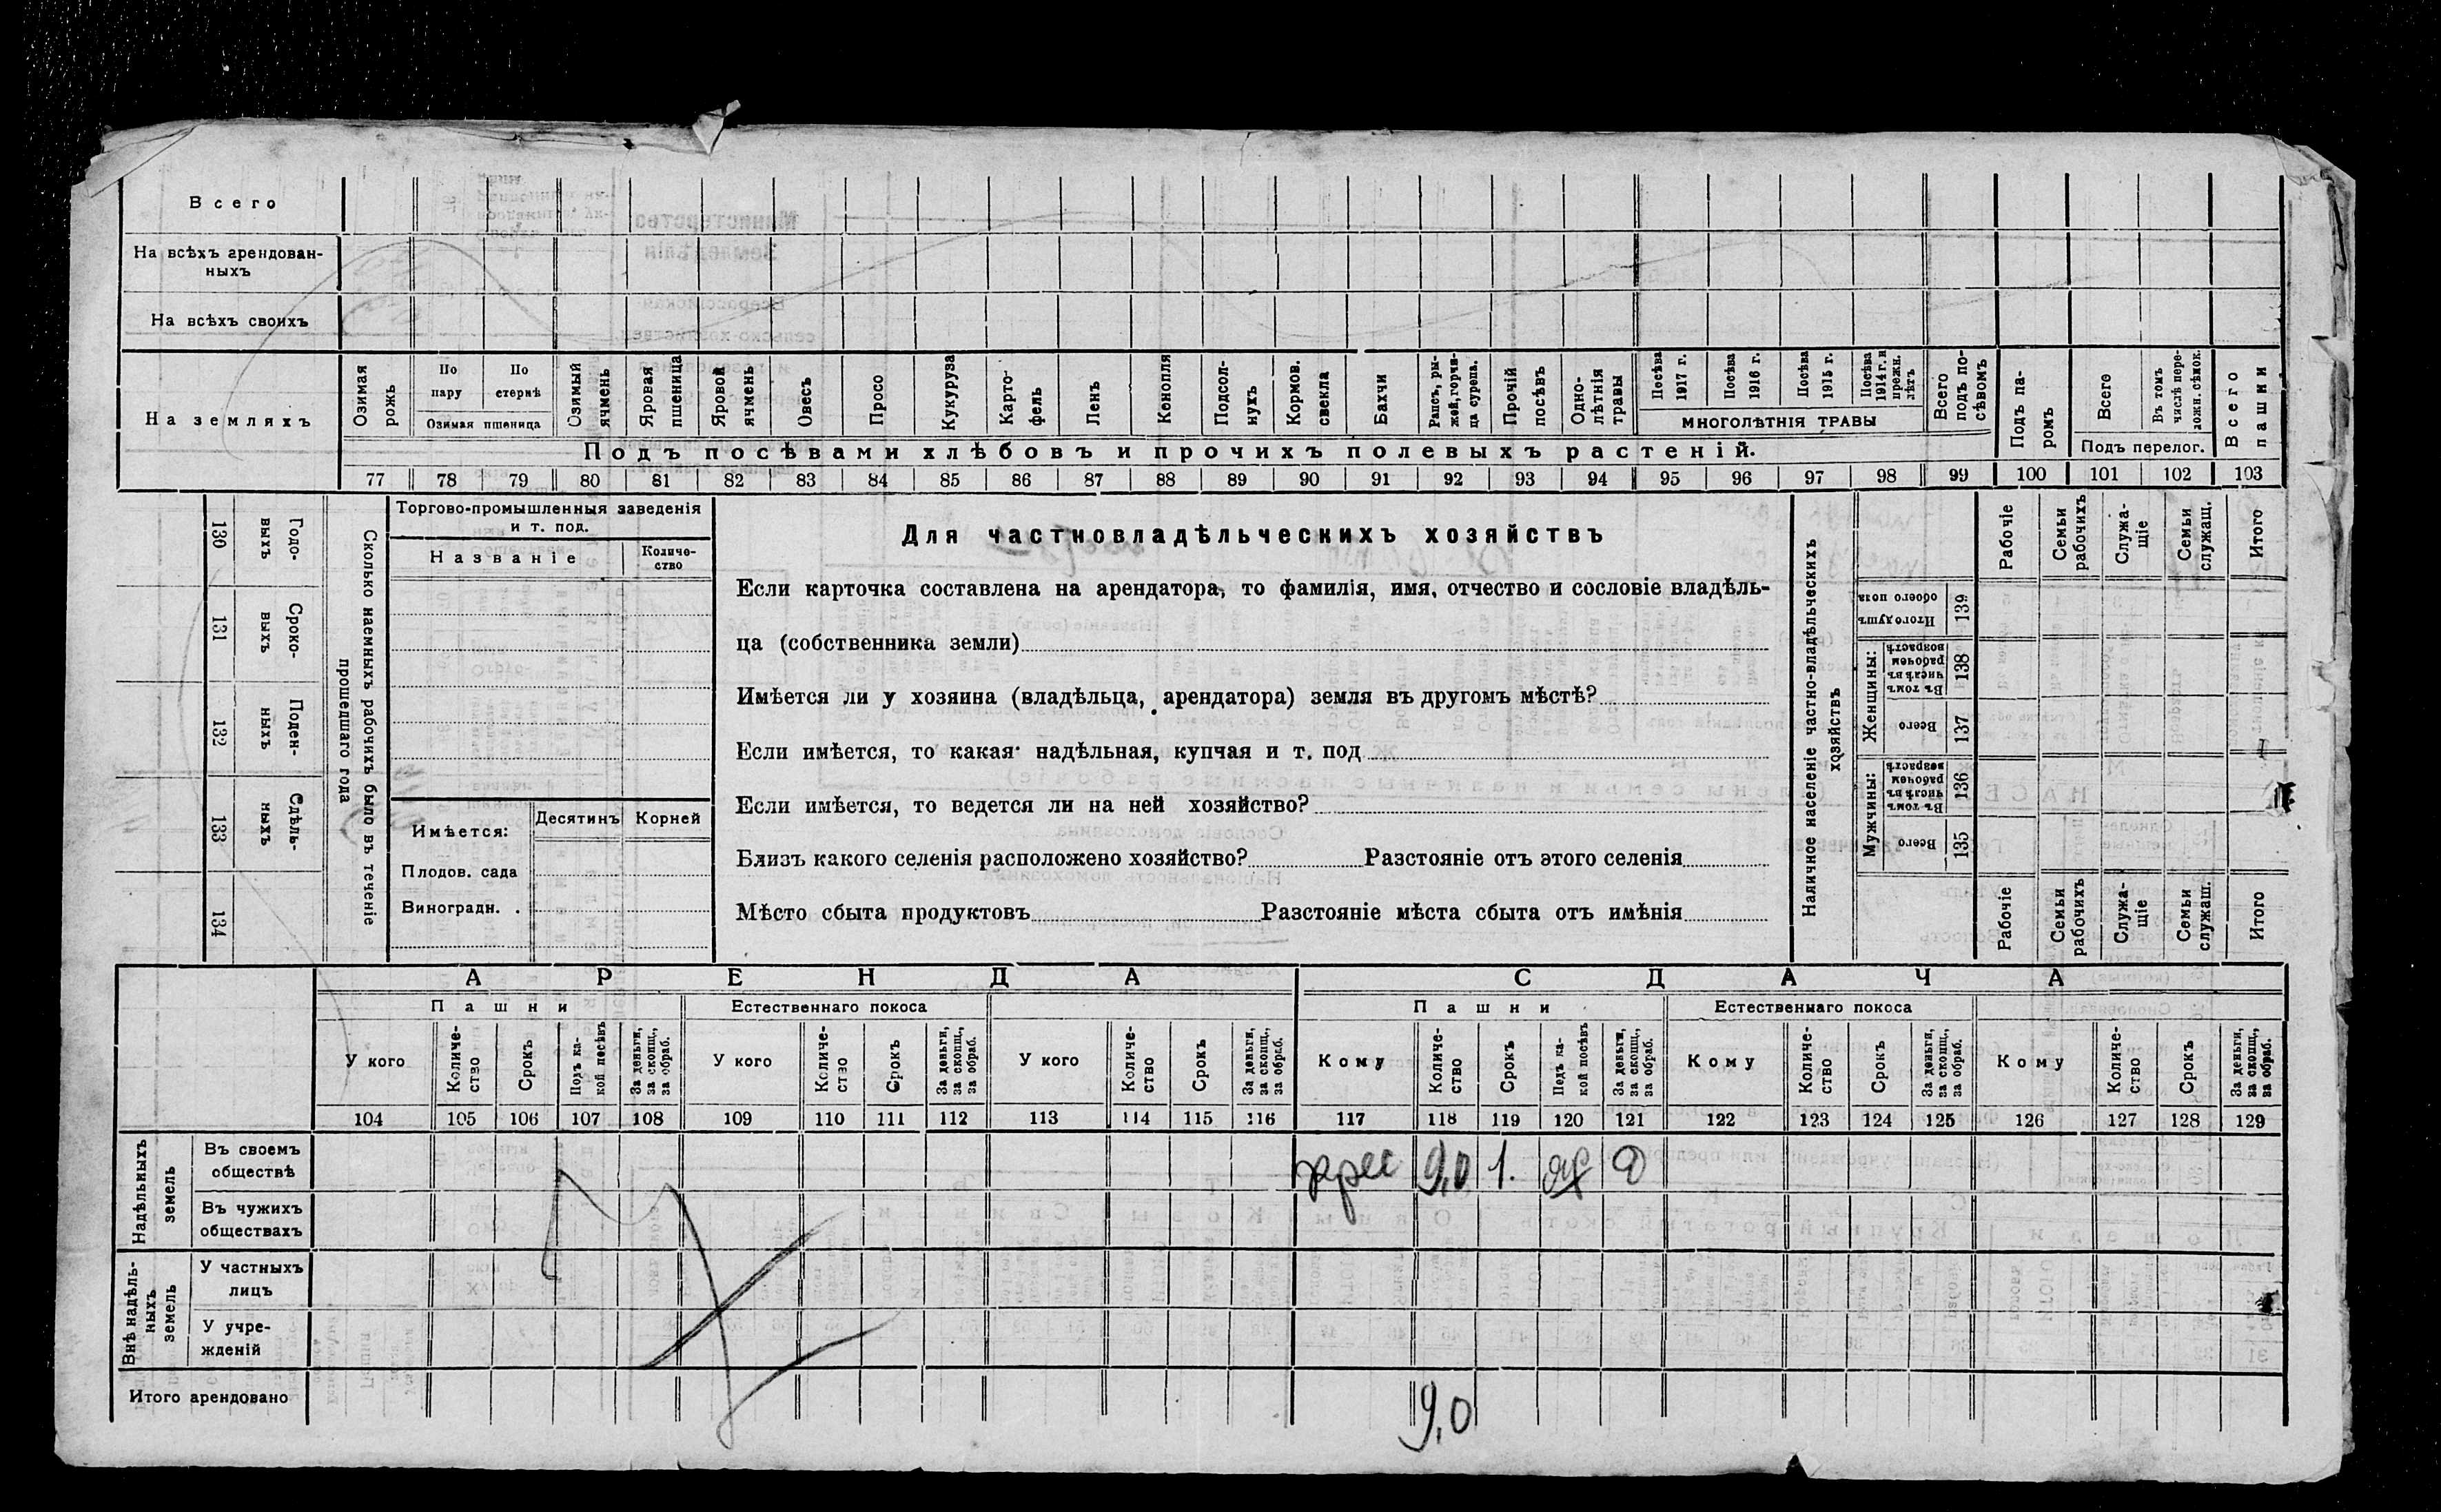 Всего
На всѣхъ арендован-
ныхъ
На всѣхъ своихъ
На земляхъ
Озимая рожь
По пару
По стернѣ
Озимая пшеница
Озимый ячмень
Яровая пшеница
Яровой ячмень
Овесъ
Просо
Кукуруза
Карто-
фель
Ленъ
Конопля
Подсол-
нухъ
Кормов. свекла
Бахчи
Рапсъ, ры-
жей, горчи-
ца сурепа.
Прочій посѣвъ
Одно-
лѣтнія травы
Посѣва 1917 г.
Посѣва 1916 г.
Посѣва 1915 г.
Посѣва 1914 г. и прежн. лѣтъ
МНОГОЛѢТНІЯ ТРАВЫ
Всего подъ по-
сѣвомъ
Подъ па-
ромъ
Всего
Въ томъ числѣ пере-
ложн. сѣнок.
Подъ перелог.
Всего пашни
Подъ посѣвами хлѣбовъ и прочихъ полевыхъ растеній.
77 78 79 80 81 82 83 84 85 86 87 88 89 90 91 92 93 94 95 96 97 98 99 100 101 102 103
130 Годо-
выхъ
131 Сроко-
выхъ
132 Поден-
ныхъ
133 Сдѣль-
ныхъ
134
Сколько наемныхъ рабочихъ было въ теченіе
прошедшаго года
Торгово-промышленныя заведенія
и т. под.
Названіе
Количе-
ство
Имѣется:
Десятинъ Корней
Плодов. сада
Виноградн. .
Для частновладѣльческихъ хозяйствъ
Если карточка составлена на арендатора, то фамилія, имя, отчество и сословіе владѣль-
ца (собственника земли)
Имѣется ли у хозяина (владѣльца, арендатора) земля въ другомъ мѣстѣ?
Если имѣется, то какая надѣльная, купчая и т. под
Если имѣется, то ведется ли на ней хозяйство?
Близъ какого селенія расположено хозяйство? Разстояніе отъ этого селенія
Мѣсто сбыта продуктовъ Разстояніе мѣста сбыта отъ имѣнія
Наличное населеніе частно-владѣльческихъ
хозяйствъ
Рабочіе
Семьи рабочихъ
Служа-
щіе
Семьи служащ.
Итого
Итого душъ обоего пола 139
Женщины:
Въ томъ числѣ въ рабочемъ возрастѣ 138
Всего 137
Мужчины:
Въ томъ числѣ въ рабочемъ возрастѣ 136
Всего 135
Рабочіе
Семьи рабочихъ
Служа-
щіе
Семьи служащ.
Итого
АРЕНДА
СДАЧА
Пашни
Естественнаго покоса
Пашни
Естественнаго покоса
У кого
Количе-
ство
Срокъ
Подъ ка-
кой посѣвъ
За деньги, за скопщ., за обраб.
У кого
Количе-
ство
Срокъ
За деньги, за скопщ., за обраб.
У кого
Количе-
ство
Срокъ
За деньги, за скопщ., за обраб.
Кому
Количе-
ство
Срокъ
Подъ ка-
кой посѣвъ
За деньги, за скопщ., за обраб.
Кому
Количе-
ство
Срокъ
За деньги, за скопщ., за обраб.
Кому
Количе-
ство
Срокъ
За деньги, за скопщ., за обраб.
104 105 106 107 108 109 110 111 112 113 114 115 116 117 118 119 120 121 122 123 124 125 126 127 128 129
Надѣльныхъ
земель
Въ своемъ
обществѣ
9,0 1. Д
Въ чужихъ
обществахъ
Внѣ надѣль-
ныхъ
земель
У частныхъ
лицъ
У учре-
жденій
Итого арендовано
9,0